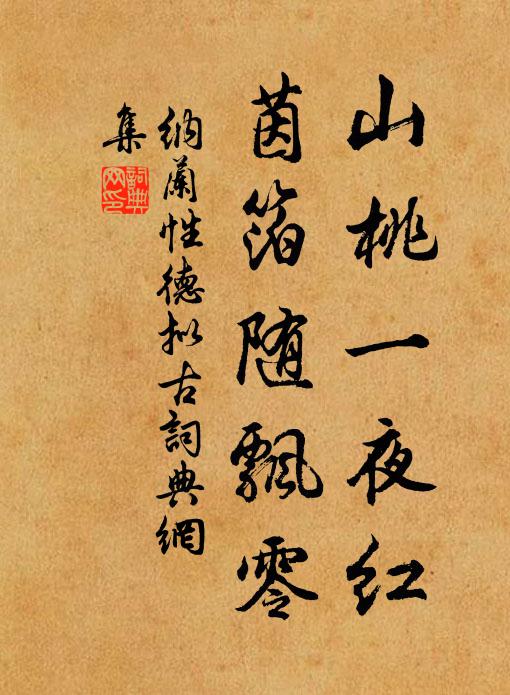 山桃一夜红
茵箔随飘零
纳兰性德拟古词典網
集
詞典網印